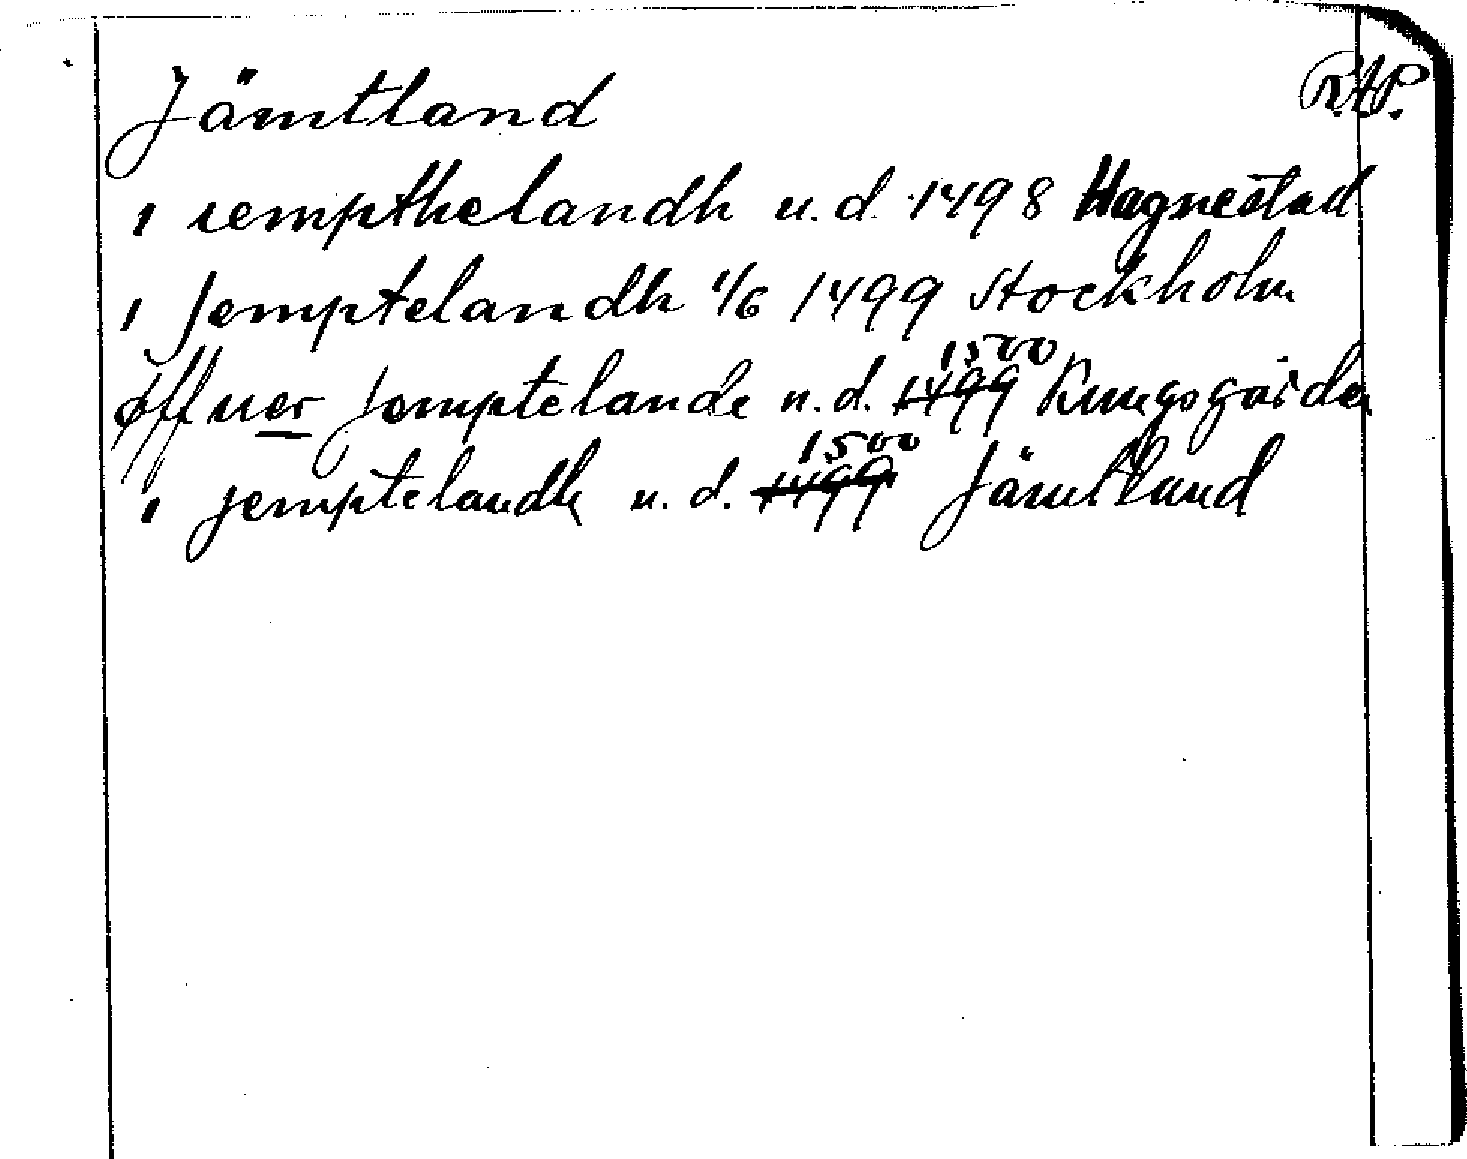 Jämtland R.A.P.
ı iempthelandh u.d. 1498 Hagnestad
ı Jemptelandh 1/6 1499 Stockholm
öffuer Jemptelande u.d. 1499 1500 Kungsgården
ı jemptelandh u.d. 1499 1500 Jämtland